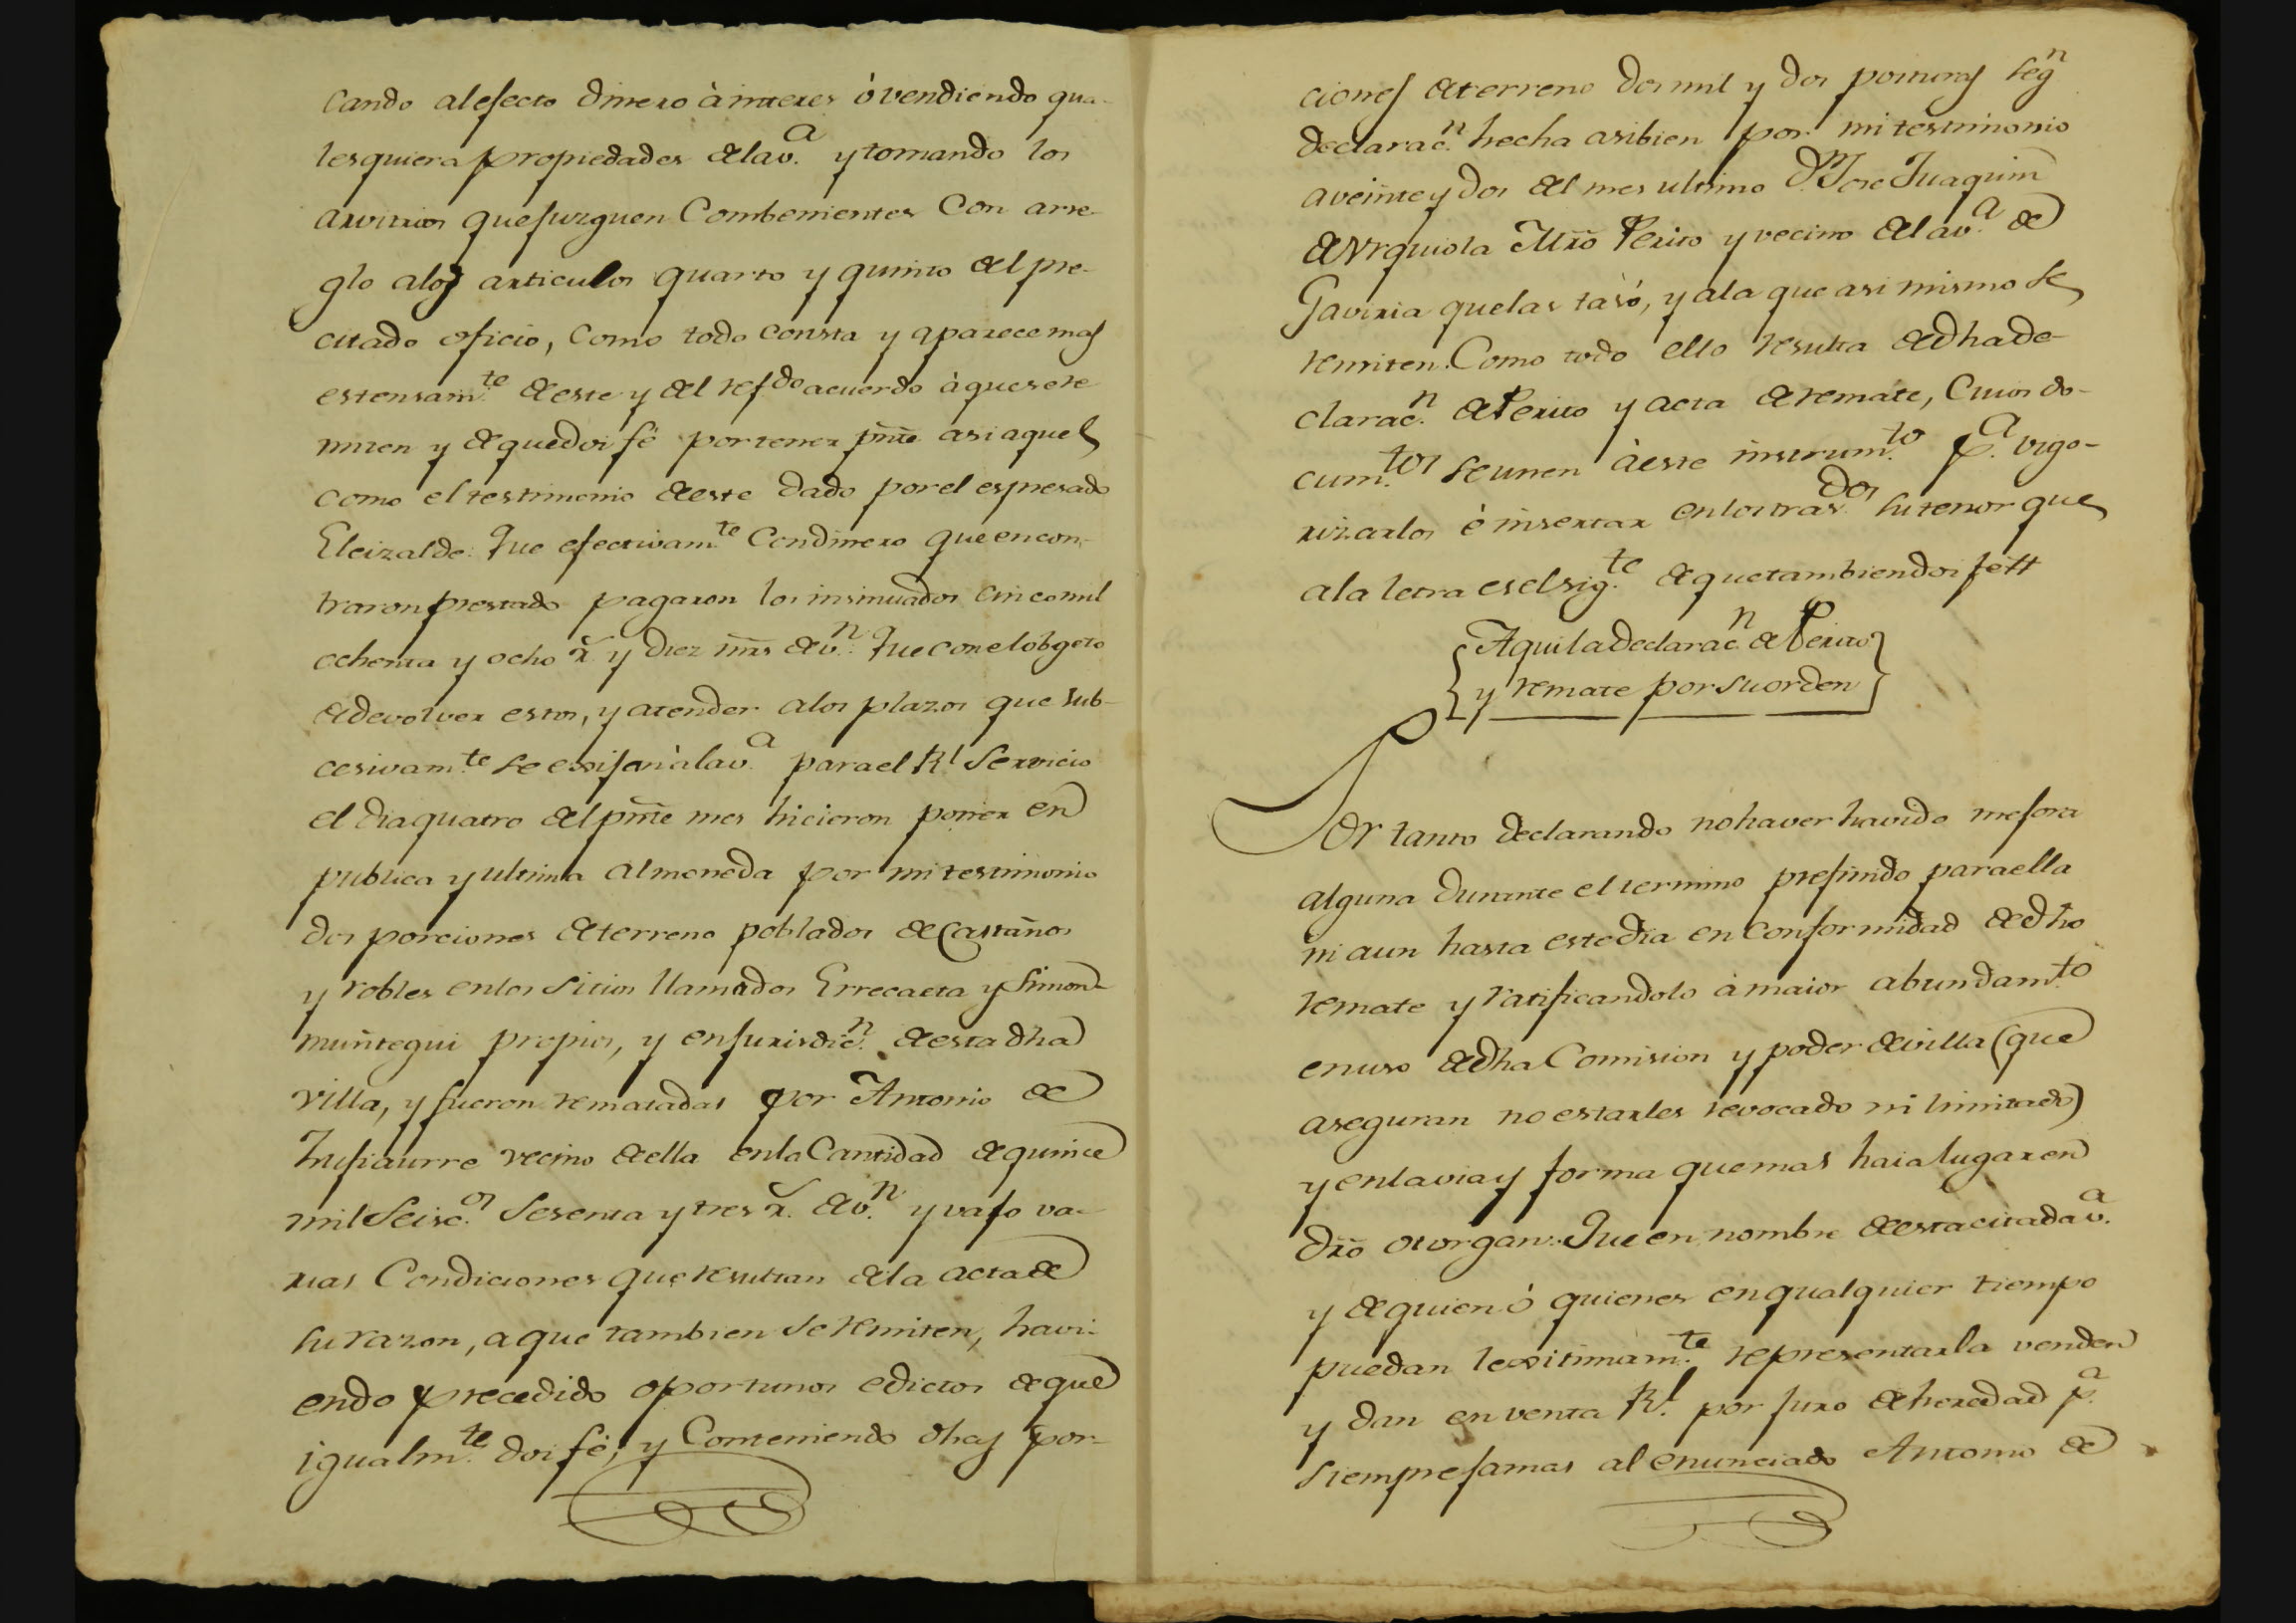 cando al efecto dinero à interes ó vendiendo qua-
lesquiera propiedades de la v.ª y tomando los
arvitrios que jurguen Combenientes Con arre-
glo alos articulos quarto y quinto del pre-
citado oficio, Como todo consta y aparece mas
estensam.te de este y del refdo acuerdo à que se re-
miten y de que doi fé por tener pnte asi aquel
como el testimonio de este dado por el espresado
Eleizalde: Que efectivam.te Con dinero que encon-
traron prestado pagaron los insinuados cinco mil
ochenta y ocho r.s y diez mrs de v.n Que con el obgeto
de devolver estos, y atender a los plazos que sub-
cesivam.te se exijen à la v.a para el Rl Servicio
el dia quatro del pnte mes hicieron poner en
publica y ultima almoneda por mi testimonio
dos porciones de terreno poblados de Castaños
y robles en los sitios llamados Errecaeta y Simon-
muñtegui propios, y en jurisdic.n de esta dha
villa, y fueron rematadas por Antonio de
Insiaurre vecino de ella en la Cantidad de quince
mil seisc.os sesenta y tres r.s de v.n y vajo va-
rias Condiciones que resultan de la acta de
su razon, a que tambien se remiten, havi-
endo precedido oportunos edictos de que
igualm.te doi fé; y Conteniendo dhas por-
ciones de terreno dos mil y dos posturas seg.n
declarac.n hecha asibien por mi testimonio
a veinte y dos del mes ultimo D.n Jose Juaquin
de Vrquiola Mro Perito y vecino de la v.a de
Gaviria que las tasó, y a la que asi mismo se
remiten. Como todo ello resulta de dha de-
clarac.n de Perito y acta de remate, Cuios do-
cum.tos se unen à este instrum.to p.a vigo-
rizarlos è insertar en los tras.dos su tenor que
a la letra es el sig.te de que tambien doi fé tt
{Aqui la declarac.n de Perito}
{y remate por su orden}
Por tanto declarando no haver havido mejora
alguna durante el termino prefinido para ella
ni aun hasta este dia en Conformidad de dho
remate y ratificandolo à maior abundam.to
en uso de dha Comision y poder de villa (que
aseguran no estarles revocado ni limitado)
y en la via y forma que mas haia lugar en
dro otorgan: Que en nombre de esta citada v.a
y de quien ó quienes en qualquier tiempo
puedan lexitimam.te representarla venden
y dan en venta Rl. por juro de heredad p.a
siempre jamas al enunciado Antonio de